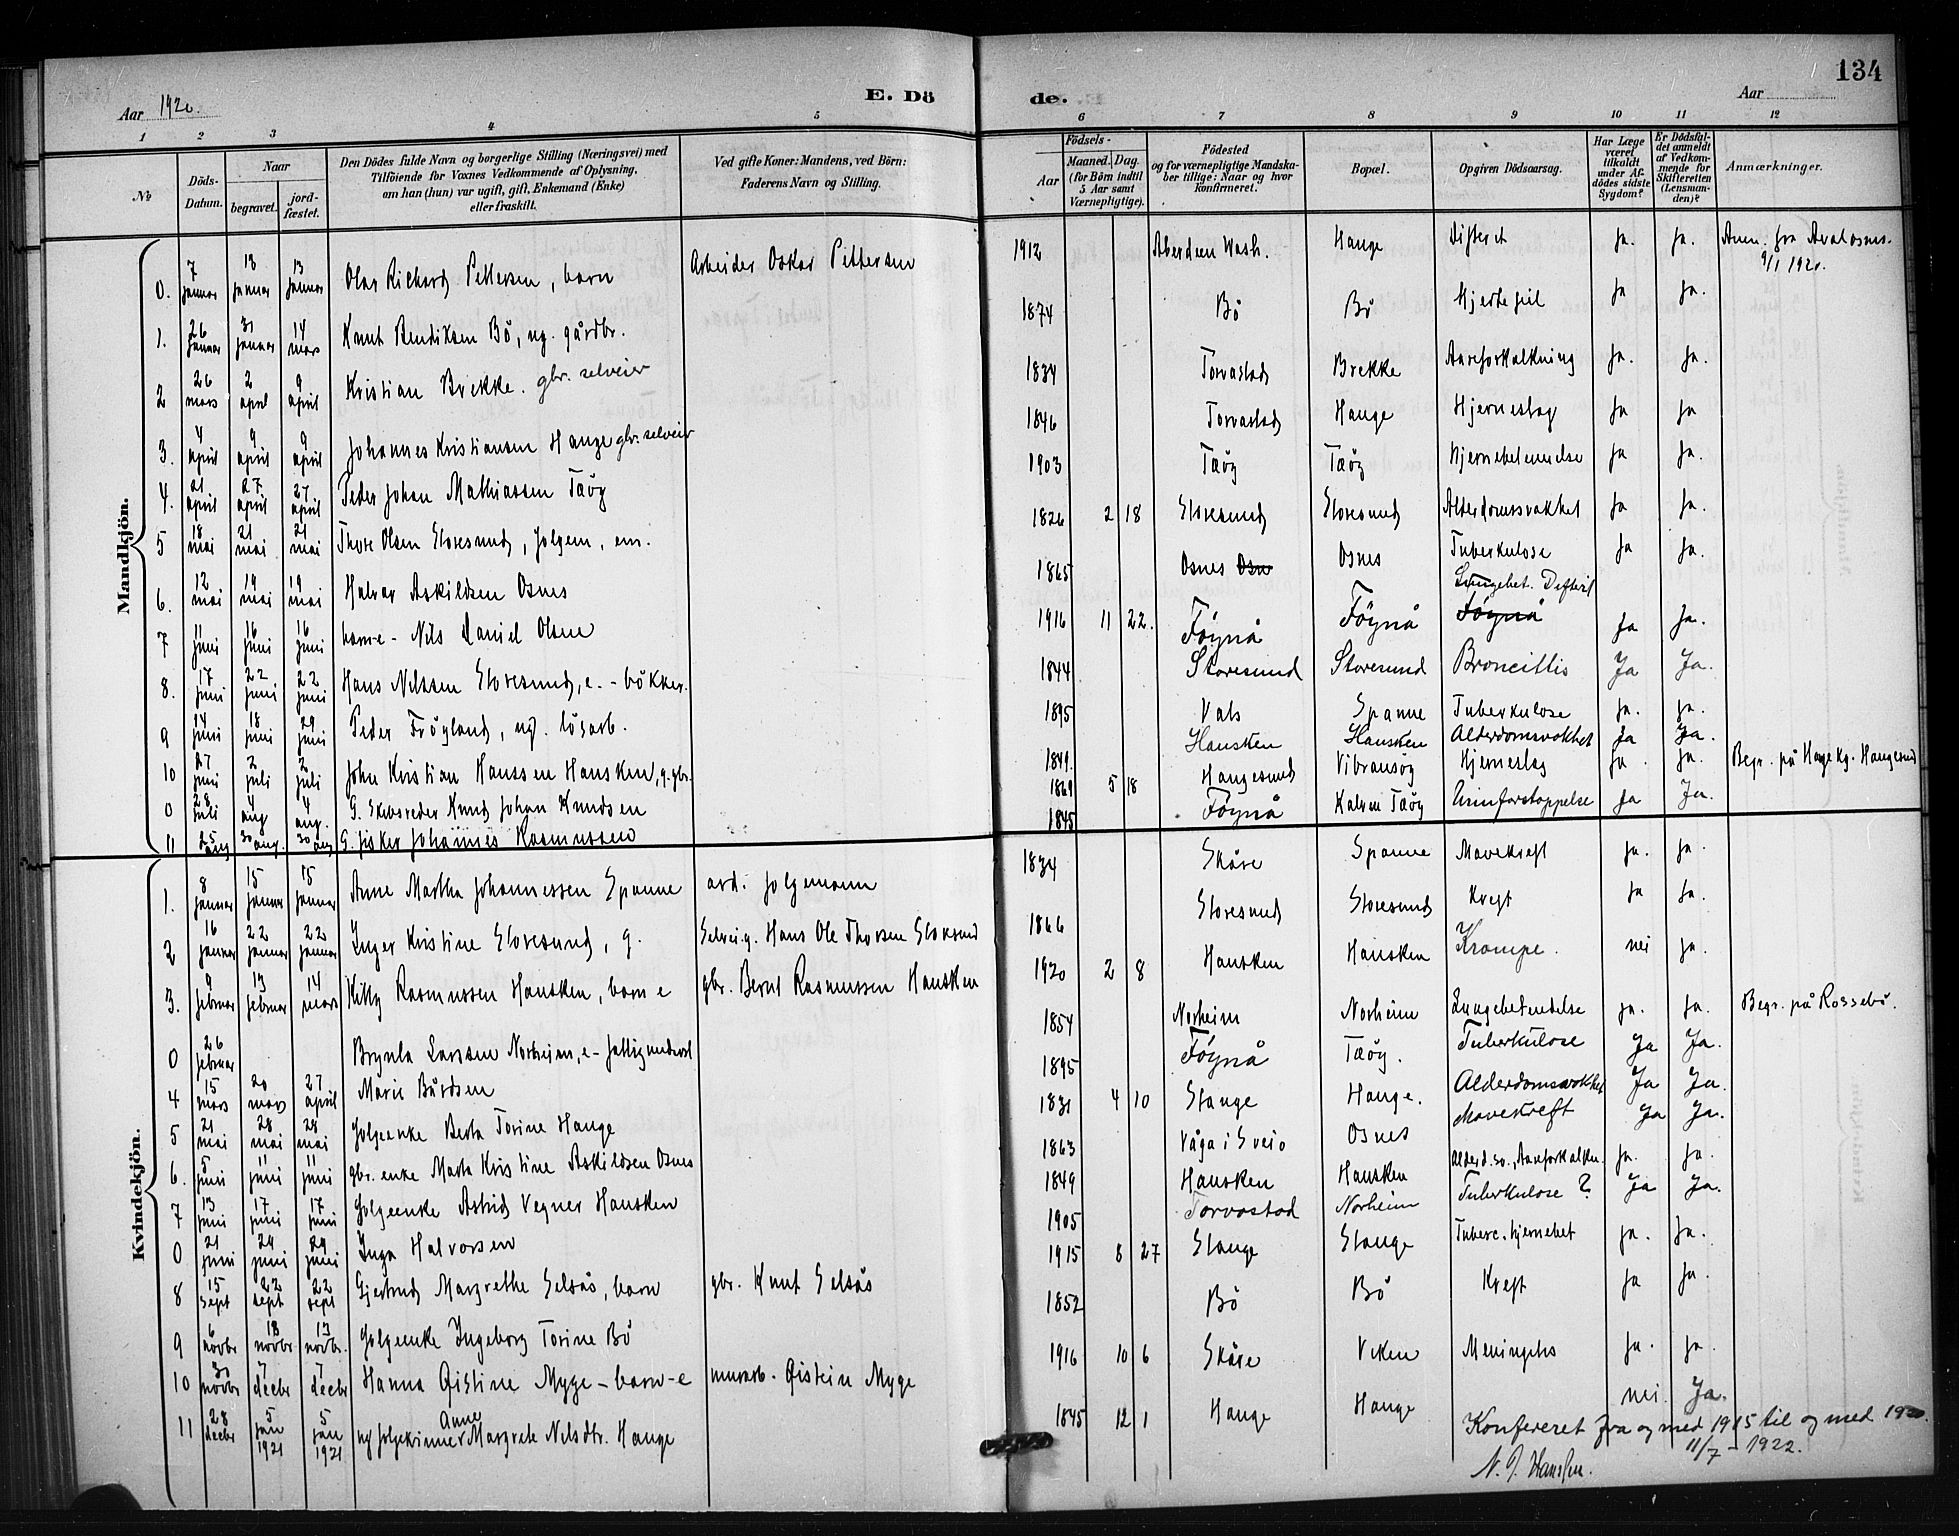 134
Aar 1920.
E. Dö
de.
Aar
1 2 3 4 5 6 7 8 9 10 11 12
№
Döds-Datum.
Naar
begravet.
jord-fæstet.
Den Dödes fulde Navn og borgerlige Stilling (Næringsvei) med
Tilföiende for Voxnes Vedkommende af Oplysning,
om han (hun) var ugift, gift, Enkemand (Enke)
eller fraskilt.
Ved gifte Koner: Mandens, ved Börn:
Faderens Navn og Stilling.
Födsels-
Aar
Maaned. Dag.
(for Börn indtil
5 Aar samt
Værnepligtige).
Födested
og for værnepligtige Mandska-
ber tillige: Naar og hvor
konfirmeret.
Bopæl.
Opgiven Dödsaarsag.
Har Læge
været
tilkaldt
under Af-
dödes sidste
Sygdom?
Er Dödsfal-
det anmeldt
af Vedkom-
mende for
Skifteretten
(Lensman-
den)?
Anmærkninger.
Mandkjön.
0. 7 januar 13 januar 13 januar Olav Rickard Pettersen, barn Arbeider Oskar Pettersen 1912 Aberdeen Wash. Hauge Difterit ja. ja. Anm. fra Avaldsnes 9/1 1920.
1. 26 januar 31 januar 14 mars Knut Bendiksen Bö, ug. gårdbr. 1874 Bö Bö Hjertefeil ja ja.
2 26 mars 2 april 9 april Kristian Brekke. gbr. selveier 1834 Torvastad Brekke Aareforkalkning ja. ja.
3. 4 april 9 april 9 april Johannes Kristiansen Hauge gbr. selveier 1846 Torvastad Hauge Hjerneslag ja ja
4. 21 april 27 april 27 april Peder Johan Mathiassen Taög 1903 Taög Taög Hjernebetendelse ja ja.
5 18 mai 21 mai 21 mai Thore Olsen Storesund, folgem, em. 1826 2 18 Storesund Storesund Alderdomssvakhet ja ja.
6. 12 mai 19 mai 19 mai Halvor Askildsen Osnes 1865 Osnes Osn Osnes Tuberkulose ja ja.
7 11 juni 16 juni 16 juni barn-e- Nils Daniel Olsen 1916 11 22. Föynå Föynå Lungebet. Difterit Föynå Ja Ja.
8. 17 juni 22 juni 22 juni Hans Nilssen Storesund, e. - bökker. 1844 Storesund Storesund Broncittis Ja Ja.
9 14 juni 18 juni 29 juni Peder Fröyland, ug. lösarb. 1895 Vats Spanne Tuberkulose ja. ja.
10 27 juni 2 juli 2 juli John Kristian Hanssen Hausken, g. gbr. 1849. Hausken Hausken Alderdomsvakhet Ja Ja.
0 28 juli 4 aug 4 aug. G. Skibsreder Knud Johan Knudsen 1869 5 18 Haugesund Vibransöy Hjerneslag ja. ja. Begr. på Hauge kg. Haugesund
11 25 aug 30 aug. 30 aug G. fisker Johannes Rasmussen 1845 Föynå Kalven Taög Urinforstoppelse Ja Ja.
Kvindekjön.
1. 8 januar 15 januar 15 januar Anne Martha Johannessen Spanne avd. folgemann 1834 Skåre Spanne Mavekreft ja. ja.
2 16 januar 22 januar 22 januar Inger Kristine Storesund, g. Selveig. Hans Ole Thorsen Storesund 1866 Storesund Storesund Kreft ja ja.
3. 9 februar 13 februar 14 mars Kitty Rasmussen Hausken, barn e gbr. Bernt Rasmussen Hausken 1920 2 8 Hausken Hausken Krampe. nei ja.
0 26 februar Brynla Larssen Norheim, e- fattigunderst 1854 Norheim Norheim Lungebetendelse ja. ja. Begr. på Rossebö.
4 15 mars 20 mars 27 april Marie Bårdsen 1895 Föynå Taög. Tuberkulose Ja Ja.
5 21 mai 28 mai 28 mai Folgeenke Berta Torine Hauge 1831 4 10 Stange Hauge. Alderdomsvakhet Ja Ja.
6. 5 juni 11 juni 11 juni gbr. enke Marta Kristine Askildsen Osnes 1863 Våga i Sveio Osnes Mavekreft Ja Ja.
7 13 juni 17 juni 17 juni Folgeenke Astrid Vegner Hausken 1849 Hausken Hausken Alderd.sv., Aareforkalkn. ja. ja.
0 21 juni 24 juni 24 juni Inga Halvorsen 1905 Torvastad Norheim Tuberkulose ? Ja Ja.
8 15 sept 22 sept 22 sept Gjertrud Margrethe Selsås, barn gbr. Knut Selsås 1915 8 27 Stange Stange Tuberc. hjernebet ja. ja.
9 6 novbr 13 novbr 13 novbr. Folgeenke Ingeborg Torine Bö 1852 Bö Bö Kreft ja ja.
10 30 novbr 7 decbr 7 decbr Hanna Øistine Myge - barn-e murarb. Øistein Myge 1916 10 6 Skåre Viken Meningitis ja. ja.
11 28 decbr 5 jan 1921 5 jan 1921 ug folgekvinne Anne Margrete Nilsdtr. Hauge 1845 12 1 Hauge Hauge nei Ja.
Konfereret fra og med 1915 til og med 1920.
11/7 - 1922.